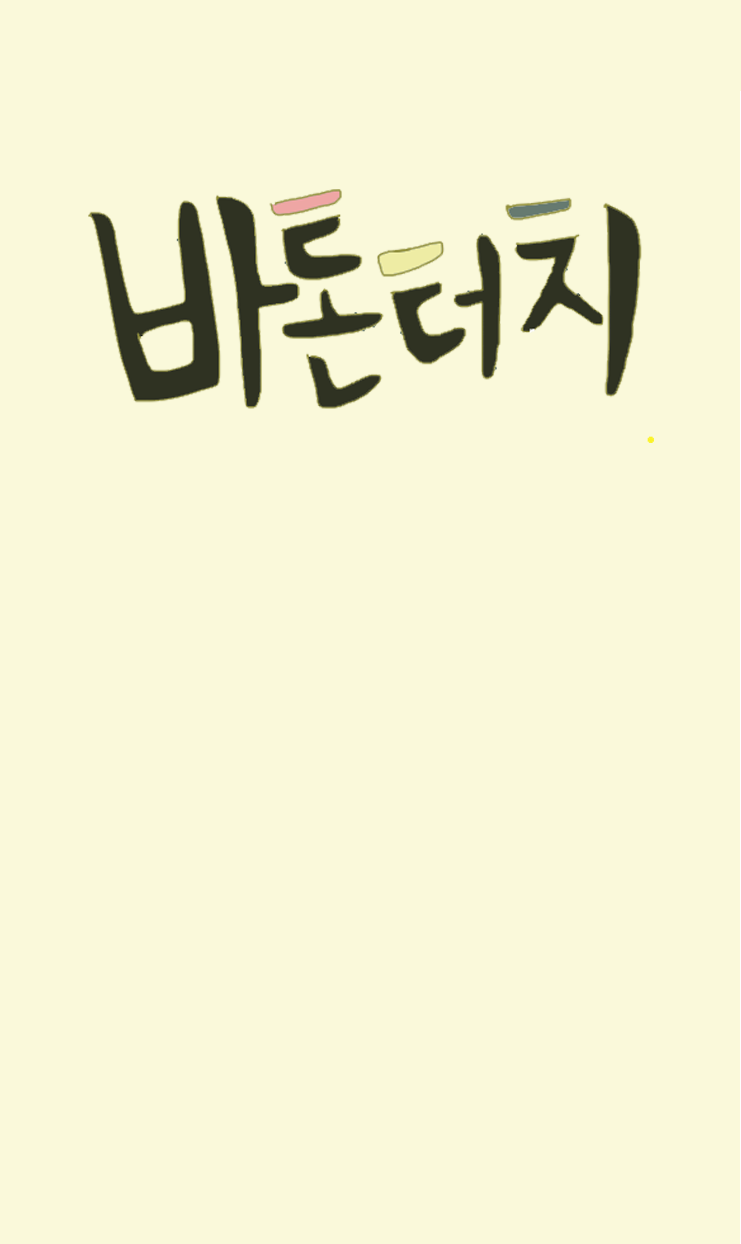 바톤터치